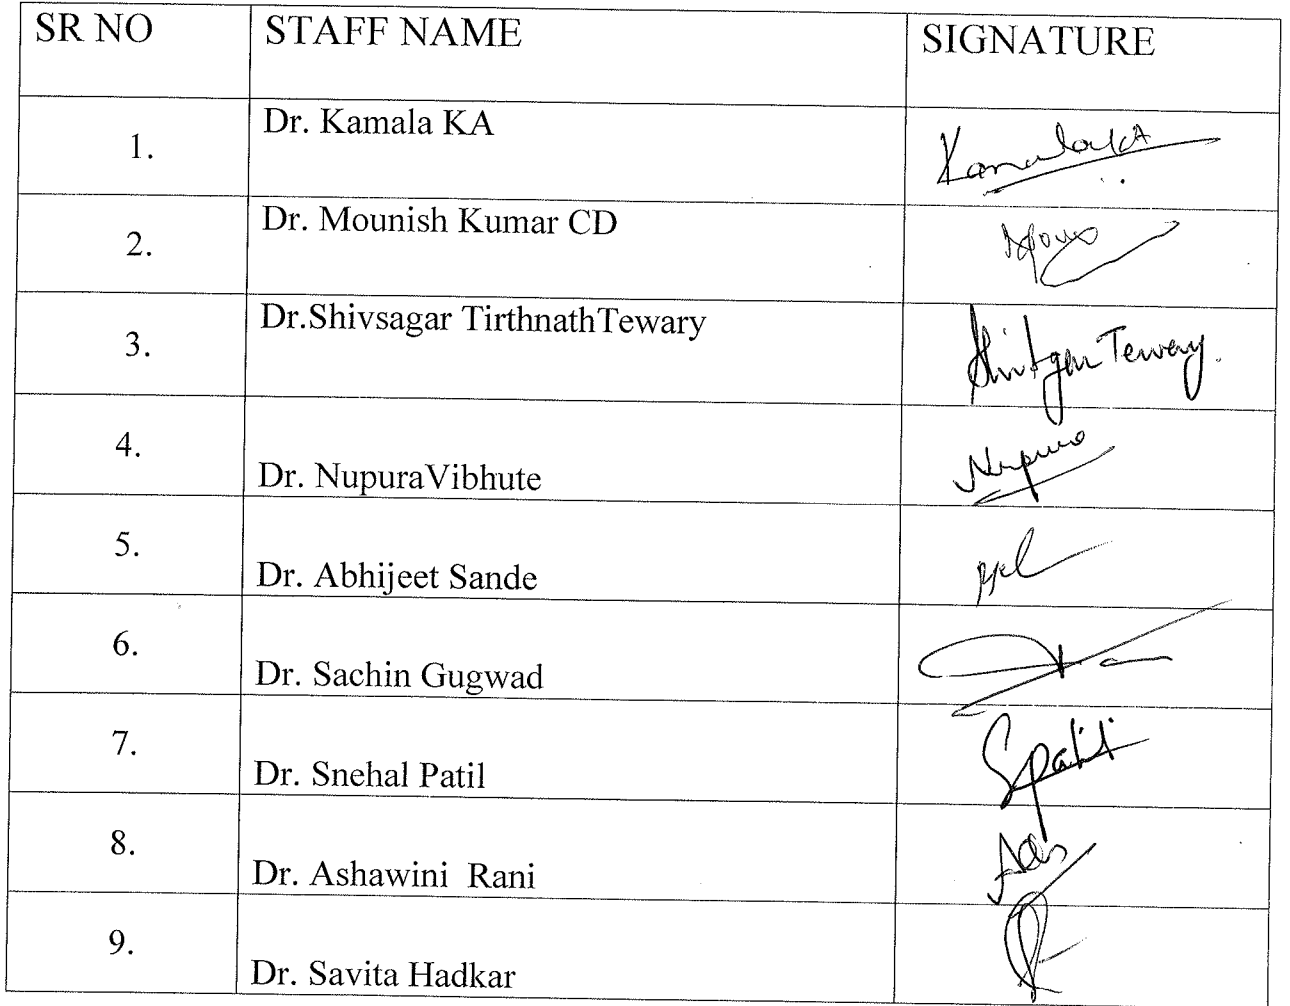 SR NO STAFF NAME SIGNATURE
1. Dr. Kamala KA KamalaKA
2. Dr. Mounish Kumar CD
3. Dr.Shivsagar TirthnathTewary Tewary.
4. Dr. NupuraVibhute Nupura
5. Dr. Abhijeet Sande
6. Dr. Sachin Gugwad
7. Dr. Snehal Patil SPatil
8. Dr. Ashawini Rani
9. Dr. Savita Hadkar